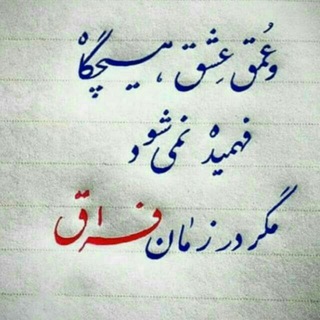 وعُمق عِشق، هیچگاه
فهمیده نمی‌شود
مگر در زمان فراق